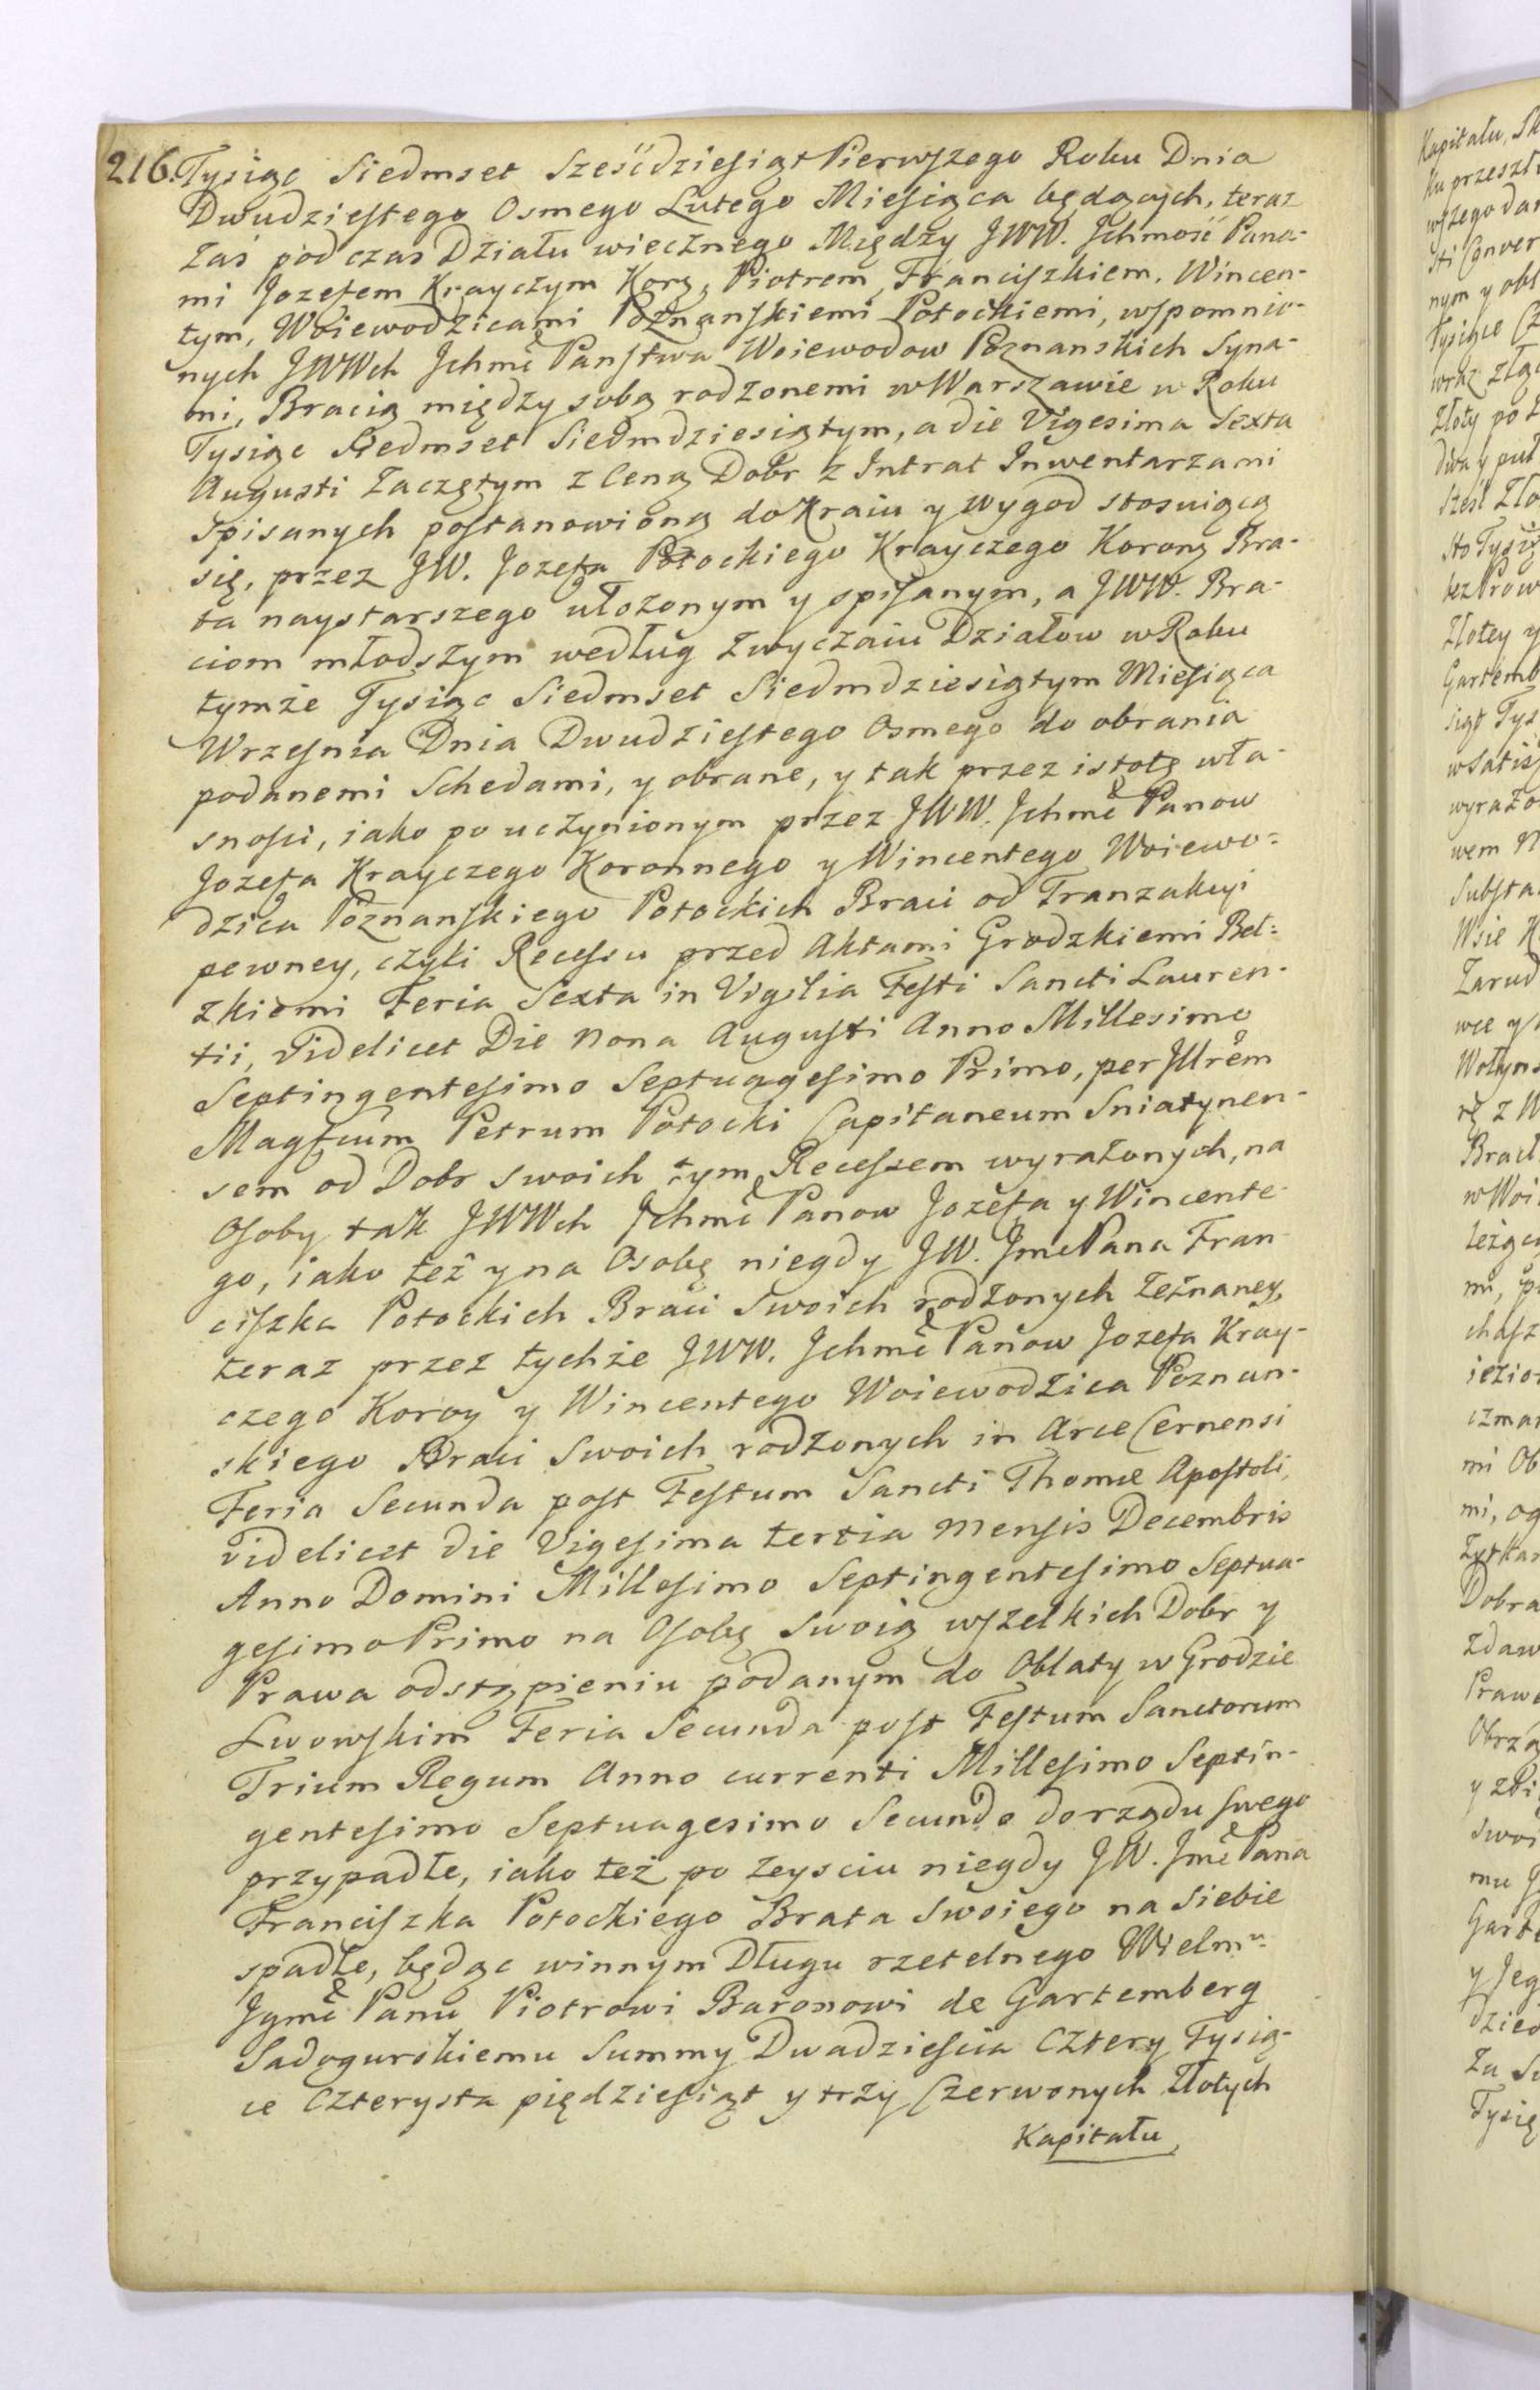 216. Tysiąc Siedmset Sześćdziesiąt Pierwszego Roku Dnia
Dwudziestego Osmego Lutego Miesiąca będących, teraz
zaś pod czas Działu wiecznego Między JWW. Ichmość Pana-
mi Jozefem Krayczym Korą, Piotrem, Franciszkiem, Wincen-
tym, Woiewodzicami Poznanskiemi Potockiemi, wspomnio-
nych JWWch Ichmć Panstwa Woiewodow Poznanskich Syna-
mi, Bracią między sobą rodzonemi w Warszawie w Roku
Tysiąc Siedmset Siedmdziesiątym, a die Vigesima Sexta
Augusti Zaczętym z Ceną Dobr z Intrat Inwentarzami
spisanych postanowioną do Kraiu y wygod stosuiącą
się, przez JW. Jozefa Potockiego Krayczego Korong Bra-
ta naystarszego ułozonym y opisanym, a JWW. Bra-
ciom młodszym według Zwyczaiu Działow w Roku
tymże Tysiąc Siedmset Siedmdziesiątym Miesiąca
Wrzesnia Dnia Dwudziestego Osmego do obrania
podanemi Schedami, y obrane, y tak przez istotę wła-
snosci, iako po uczynionym przez JWW. Ichmć Panow
Jozefa Krayczego Koronnego y Wincentego Woiewo-
dzica Poznanskiego Potockich Braci od Tranzakcyi
pewney, czyli Recessu przed Aktami Grodzkiemi Bel-
zkiemi Feria Sexta in Vigilia Festi Sancti Lauren-
tii, videlicet Die Nona Augusti Anno Millesimo
Septingentesimo Septuagesimo Primo, per Illrem
Magficum Petrum Potocki Capitaneum Sniatynen-
sem od Dobr swoich tym Recessem wyrazonych, na
Osoby tak JWWch Ichmć Panow Jozefa y Wincente-
go, iako też y na Osobę niegdy JW. Jmc Pana Fran-
ciszka Potockich Braci Swoich rodzonych Zeznaney,
teraz przez tychże JWW. Ichmć Panow Jozefa Kray-
czego Korgo y Wincentego Woiewodzica Poznan-
skiego Braci Swoich rodzonych in Arce Cernensi
Feria Secunda post Festum Sancti Thomæ Apostoli,
videlicet die Vigesima tertia Mensis Decembris
Anno Domini Millesimo Septingentesimo Septua-
gesimo Primo na Osobę Swoią wszelkich Dobr y
Prawa odstąpieniu podanym do Oblaty w Grodzie
Lwowskim Feria Secunda post Festum Sanctorum
Trium Regum Anno currenti Millesimo Septin-
gentesimo Septuagesimo Secundo do rządu swego
przypadłe, iako też po zeysciu niegdy JW. Jmć Pana
Franciszka Potockiego Brata Swoiego na siebie
spadłe, będąc winnym Długu rzetelnego Wielmu
Jgmć Panu Piotrowi Baronowi de Gartemberg
Sadogurskiemu Summy Dwadziescia Cztery Tysią-
ce Czterysta piędziesiąt y trzy Czerwonych Złotych
Kapitału